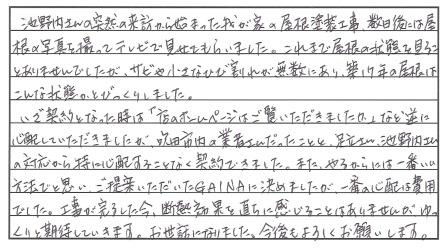 池野内さんの突然の来訪から始まった我が家の屋根塗装工事、数日後には屋
根の写真を撮ってテレビで見せてもらいました。これまで屋根の状態を見るこ
とありませんでしたが、サビや小さなひび割れが無数にあり、築17年の屋根は
こんな状態かとびっくりしました。
いざ契約となった時は「店のホームページはご覧いただきましたか」など逆に
心配していただきましたが、吹田市内の業者さんだったことと、足立さん、池野内さん
の対応から特に心配することなく契約できました。また、やるからには一番いい
方法でと思い、ご提案いただいたGAINAに決めましたが、一番の心配は費用
でした。工事が完了した今、断熱効果を直ちに感じることはありませんがゆっ
くりと期待していきます。お世話になりました。今後もよろしくお願いします。